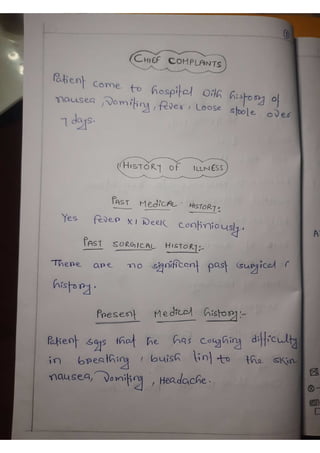 CHIEF COMPLANTS
Patient come to hospital with history of
nausea, vomiting, fever, Loose stoole over
7 days.
HISTORY OF ILLNESS
PAST MEDICAL HISTORY:-
Yes fever x 1 week continiously.
PAST SURGICAL HISTORY:-
There are no significent past surgical
history.
Present Medical history:-
Patient says that he has coughing difficulty
in breathing, buish tint to the skin
nausea, Vomiting, Headache.